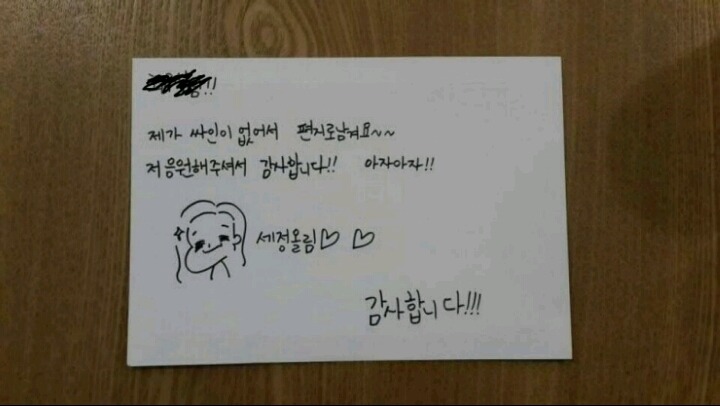 !!
제가 싸인이 없어서 편지로남겨요~~
저 응원해주셔서 감사합니다!! 아자아자!!
세정올림♡ ♡
감사합니다!!!